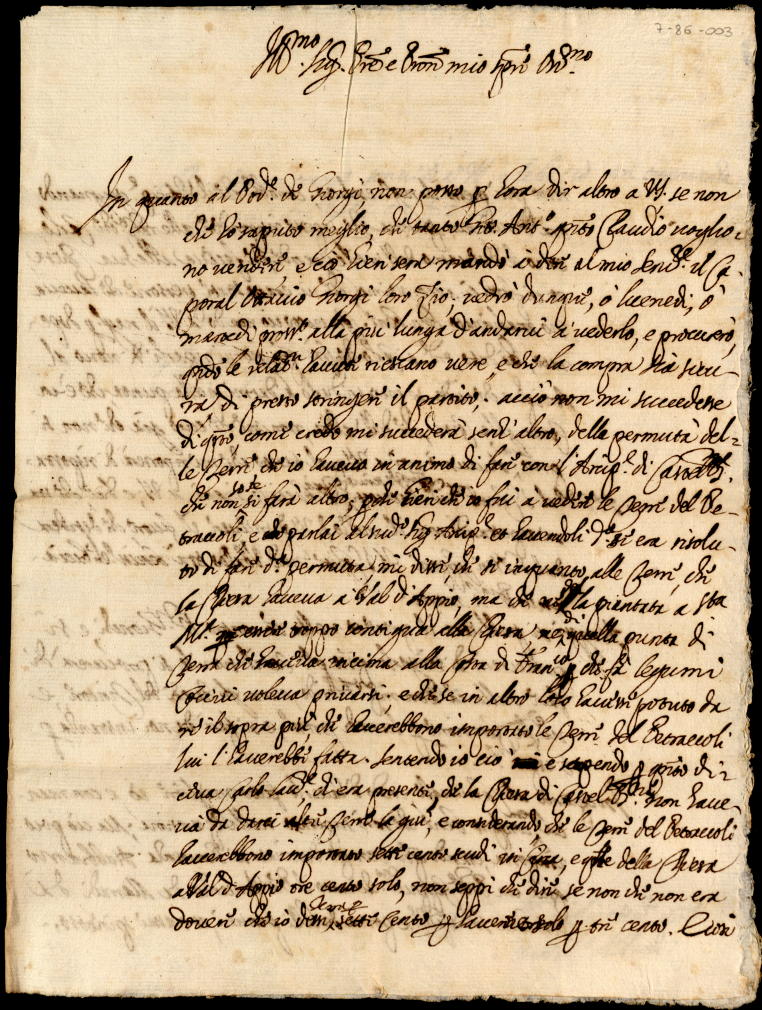 7-86-003
Ill.mo Sig. Pre e Pron mio Ossmo
In quanto al Pod.e de Giorgi, non posso p hora dir altro a VS. se non
che ho saputo meglio, che tanto Ant.o q.to Claudio voglio-
no vendere, e hieri sera mandò à dire al mio Serv.re il Ca-
poral Ottavio Giorgi loro Zio; vedrò dunque, ò luenedi, ò
martedi pross.o alla più lunga d'andarmi à vederlo, e procurerò,
q.do le relat.ni haute riescano vere, e che la compra sia sicu-
ra, di presto stringere il partito, acciò non mi succedesse
di q.to come credo mi succederà senz'altro, della permuta del-
le Terre che io havevo in animo di fare con l'Arcip.e di Castel
che non se si farà altro; poiche hieri che io fui a vedere le Terre del Pe-
traccoli, e parlai al sud.o Sig. Arcip.e et havendoli d.o si era risolu-
to di fare d.a permuta mi disse, che si inquanto alle Terre, che
la Chiesa haveva a Val d'Appio, ma che la piantata a Sta
M.a troppo contigua alla Chiesa ne di quella punta di
Terra che haveva vicina alla di Fran.co che fà legumi
voleva privarsi. e che se in altro loco havessi potuto da
re il sopra più, che haverebbono importato le Terre del Petraccoli
lui l'haverebbe fatta. Sentendo io ciò e sapendo p q.to di-
ceva Carlo che era presente, che la Chiesa di Castel non have-
va da darci altre Terre la giù, e considerando, che le Terre del Petraccoli
haverebbono importato sette cento scudi in circa, e q.lle della Chiesa
a Val d'Appio tre cento solo, non seppi che dire se non che non era
dovere che io dessi Terre p sette cento p haverne solo p tre cento. Cosi